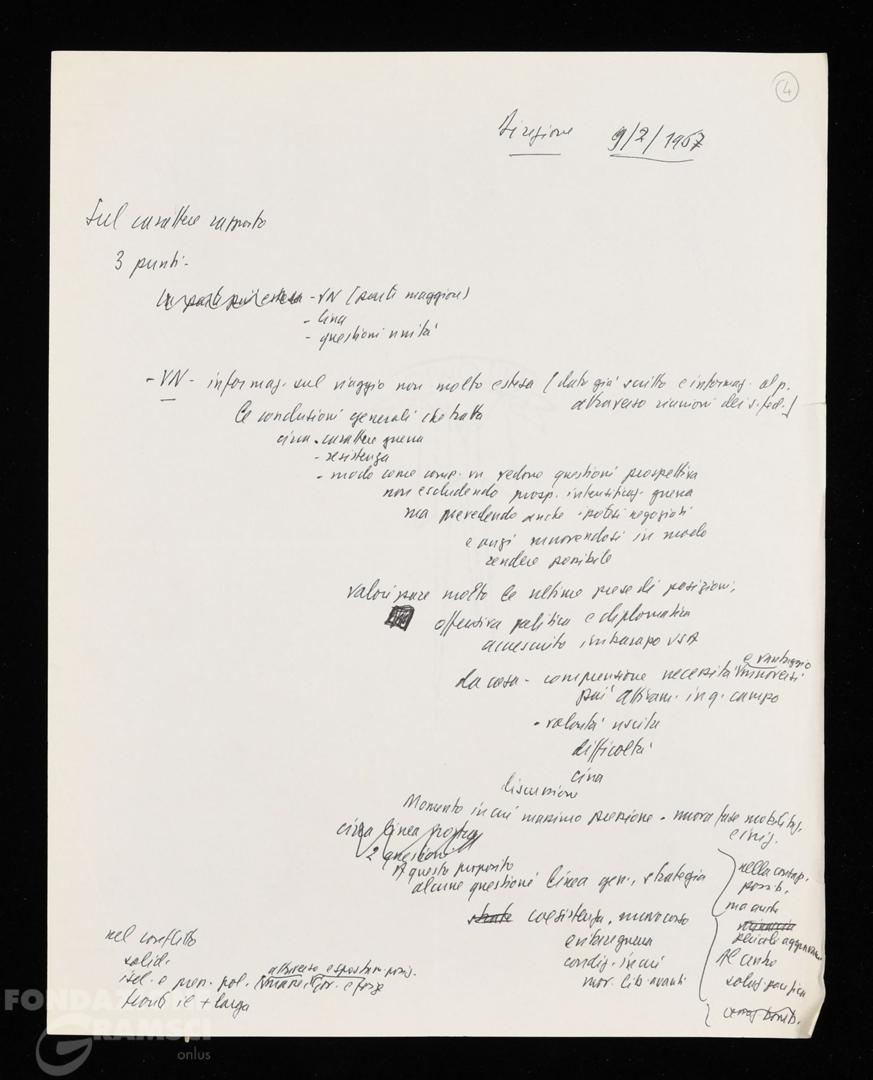 4
Direzione 9/2/1967
Sul carattere rapporto
3 punti -
- VN (parte maggiore)
- Cina
- questioni unità
- VN - informaz. sul viaggio non molto estesa (dato già scritto e informaz. al p.
attraverso riunioni dei s. fed.)
le conclusioni generali che tratta
circa - carattere guerra
- resistenza
- modo come comp. vn vedono questioni prospettiva
non escludendo prosp. intensificaz. guerra
ma prevedendo anche ipotesi negoziati
e anzi muovendosi in modo
rendere possibile
molto le ultime prese di posizioni,
offensiva politica e diplomatica
accresciuto imbarazzo USA
da cosa - comprensione necessità e vantaggio muoversi
più attivam. in q. campo
- volontà uscita
difficoltà
Cina
discussione
Momento in cui massima pressione - nuova fase mobilitaz.
e iniz.
circa linea
2 questioni
A questo proposito
alcune questioni linea gen., strategia
coesistenza, nuovo corso
e vibre guerra
condiz. in cui
mov. lib. avanti
nella
possib.
ma anche
pericoli
Al centro
soluz. pacifica
nel conflitto
solid.
isol. e pol. attraverso
fronte il + largo
FONDAZIONE
GRAMSCI
onlus